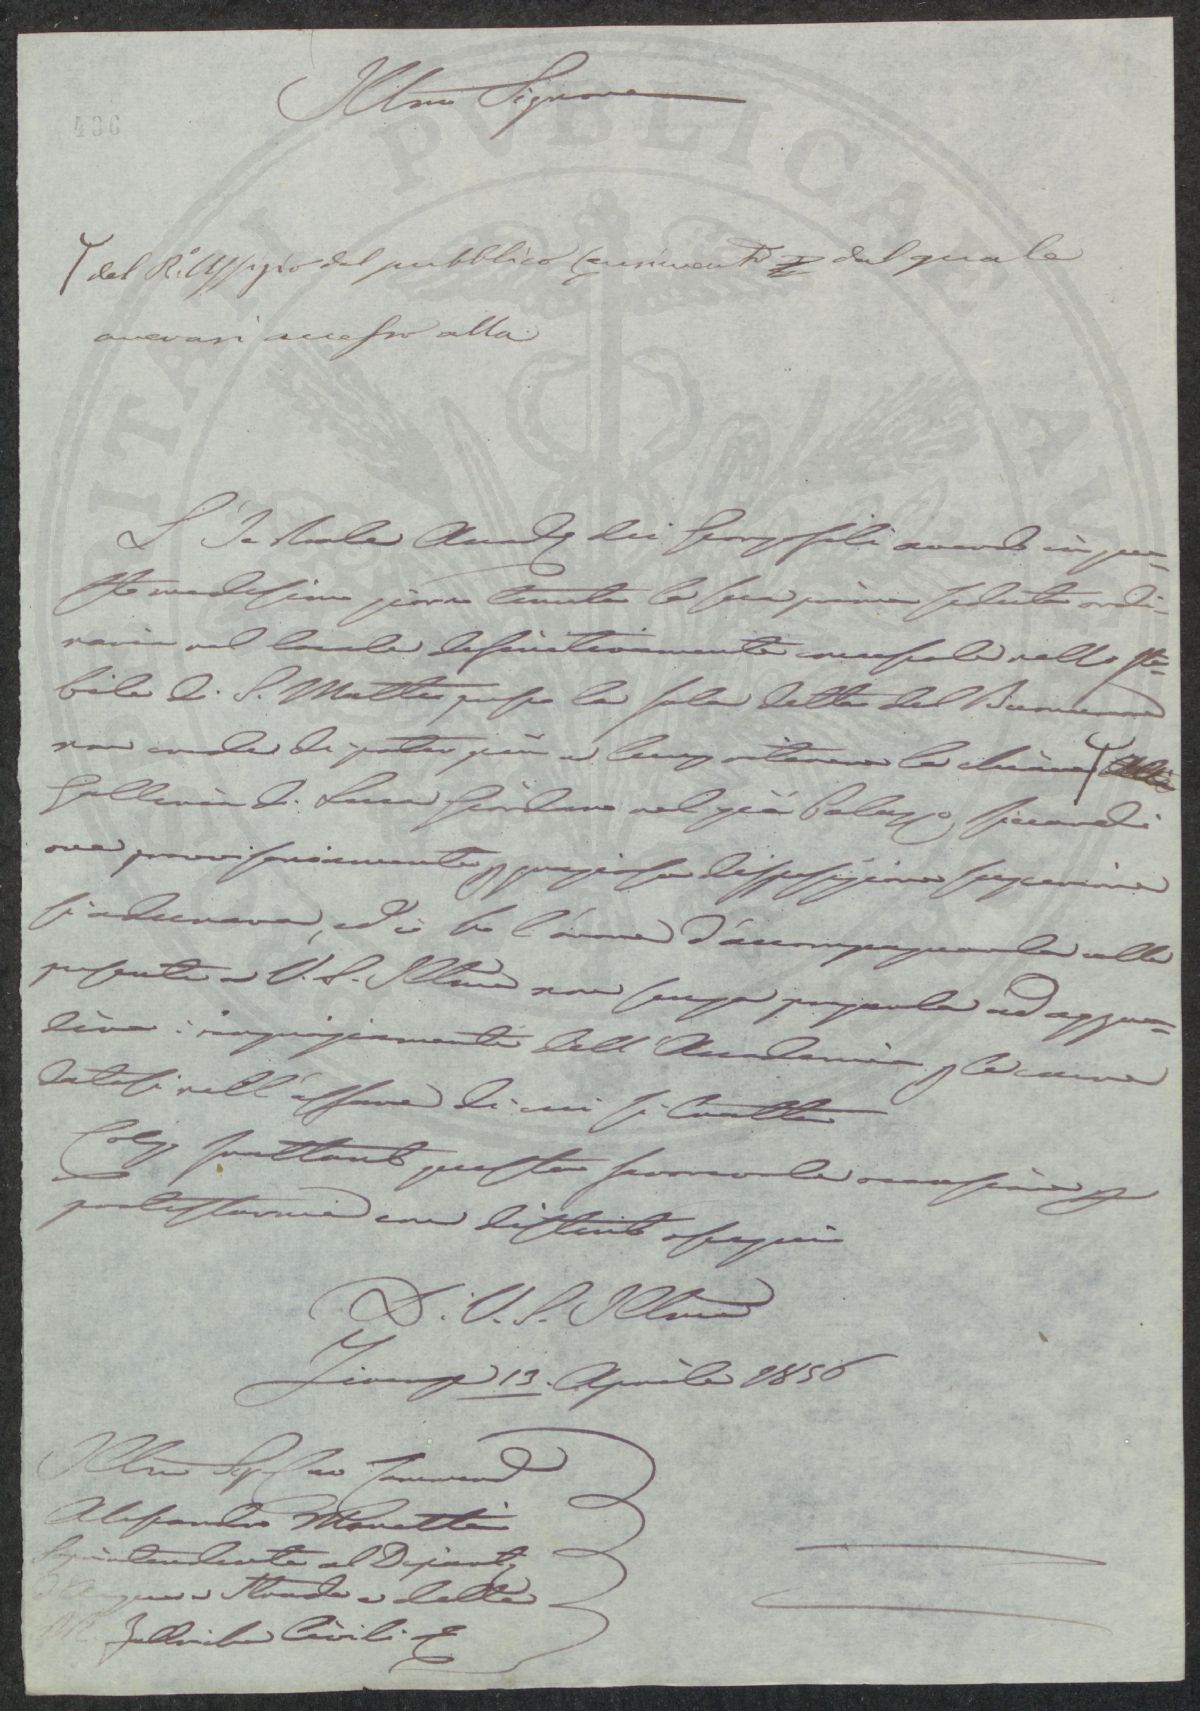 Illmo Signore
436
del R. Uffizio del pubblico Censimento dal quale
avevasi accesso alla
L'I. e Reale Accad. dei Georgofili avendo in que=
sto medesimo giorno tenuta la sua prima seduta ordi=
naria nel locale definitivamente nello sta=
bile di S. Matteo presso la sala detta del Buonumore
non di poter più a lungo ritenere la chiave
Galleria di Luca Giordano nel già Palazzo Riccardi
ove provvisoriamente per graziosa disposizione superiore
si adunava, ed io ho l'onore d'accompagnarla colla
presente a V. S. Illma non senza pregarla ad aggra=
dire i ringraziamenti dell'Accademia per le cure
datesi nell'affare di cui si tratta
Colgo frattanto questa favorevole occasione per
protestarmi con distinto ossequio
Di V. S. Illma
Firenze 13. Aprile 1856
Illmo Sig. Cav. Commend.
Alessandro Manetti
Soprintendente al Dipart.
d'Acque e Strade e delle
Fabbriche Civili
PUBLICAE